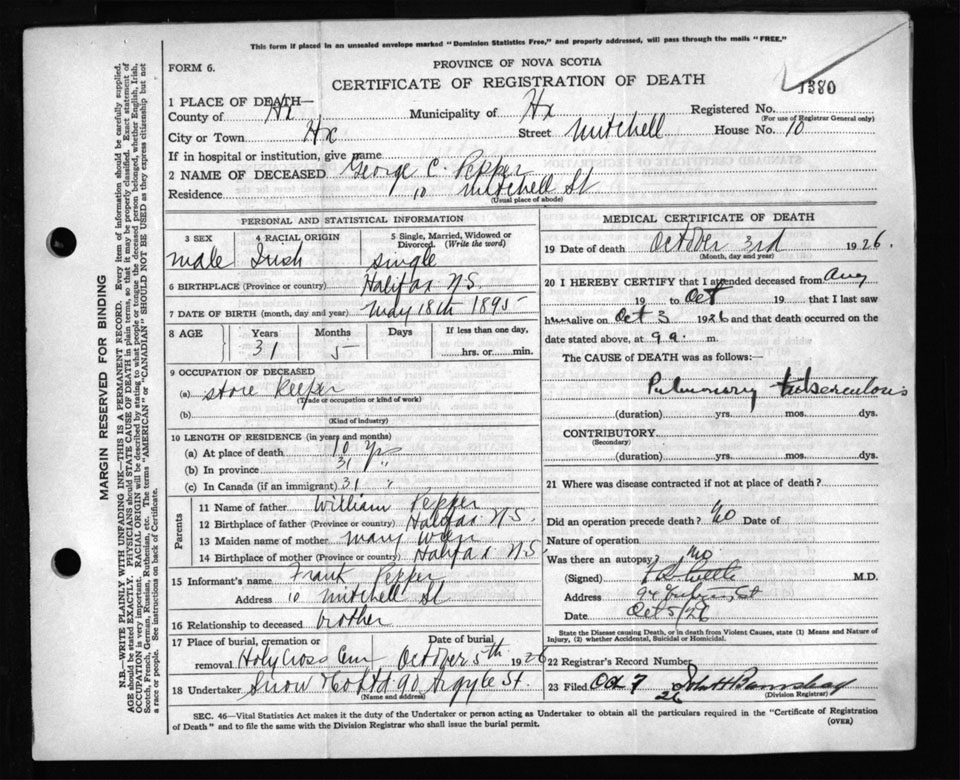 This form if placed in an unsealed envelope marked "Dominion Statistics Free," and properly addressed, will pass through the mails "FREE."
FORM 6.
PROVINCE OF NOVA SCOTIA
CERTIFICATE OF REGISTRATION OF DEATH
1380
1 PLACE OF DEATH—
County of Hx Municipality of Hx Registered No.
(For use of Registrar General only)
City or Town Hx Street Mitchell House No. 10
If in hospital or institution, give name
2 NAME OF DECEASED George C. Pepper
Residence 10 Mitchell St
(Usual place of abode)
PERSONAL AND STATISTICAL INFORMATION
3 SEX 4 RACIAL ORIGIN 5 Single, Married, Widowed or Divorced. (Write the word)
male Irish single
6 BIRTHPLACE (Province or country) Halifax N.S.
7 DATE OF BIRTH (month, day and year) May 18th 1895
8 AGE Years Months Days If less than one day,
31 5 hrs. or min.
9 OCCUPATION OF DECEASED
(a) Store Keeper
(Trade or occupation or kind of work)
(b)
(Kind of industry)
10 LENGTH OF RESIDENCE (in years and months)
(a) At place of death 10 yrs
(b) In province 31 "
(c) In Canada (if an immigrant) 31 "
Parents
11 Name of father William Pepper
12 Birthplace of father (Province or country) Halifax N.S.
13 Maiden name of mother Mary
14 Birthplace of mother (Province or country) Halifax N.S
15 Informant's name Frank Pepper
Address 10 Mitchell St
16 Relationship to deceased brother
17 Place of burial, cremation or removal Holy Cross Cem Date of burial October 5th 1926
18 Undertaker Snow & Co Ltd 90 Argyle St.
(Name and address)
MEDICAL CERTIFICATE OF DEATH
19 Date of death October 3rd 1926.
(Month, day and year)
20 I HEREBY CERTIFY that I attended deceased from Aug
19 to Oct 19 that I last saw
him alive on Oct 3 1926 and that death occurred on
date stated above, at 9 a. m.
The CAUSE of DEATH was as follows:
Pulmonary tuberculosis
(duration) yrs. mos. dys.
CONTRIBUTORY
(Secondary)
(duration) yrs. mos. dys.
21 Where was disease contracted if not at place of death?
Did an operation precede death? No Date of
Nature of operation
Was there an autopsy? No
(Signed) M.D.
Address 94 St
Date Oct 5/26
State the Disease causing Death, or in death from Violent Causes, state (1) Means and Nature of
Injury, (2) whether Accidental, Suicidal or Homicidal.
22 Registrar's Record Number
23 Filed Oct 7 26 John H
(Division Registrar)
SEC. 46—Vital Statistics Act makes it the duty of the Undertaker or person acting as Undertaker to obtain all the particulars required in the "Certificate of Registration
of Death" and to file the same with the Division Registrar who shall issue the burial permit.
(OVER)
MARGIN RESERVED FOR BINDING
N.B.—WRITE PLAINLY WITH UNFADING INK—THIS IS A PERMANENT RECORD. Every item of information should be carefully supplied.
AGE should be stated EXACTLY. PHYSICIANS should STATE CAUSE OF DEATH in plain terms, so that it may be properly classified. Exact statement of
OCCUPATION is very important. RACIAL ORIGIN will be described by stating to what people or tongue the deceased person belonged, whether English, Irish,
Scotch, French, German, Russian, Ruthenian, etc. The terms "AMERICAN" or "CANADIAN" SHOULD NOT BE USED as they express citizenship but not
a race or people. See instructions on back of Certificate.